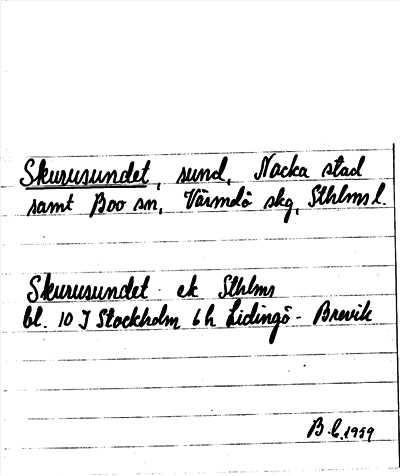 Skurusundet, sund, Nacka stad
samt Boo sn, Värmdö skg, Sthlms l.
Skurusundet ek Sthlms
bl. 10 J Stockholm 6h Lidingö - Brevik
B.C. 1959